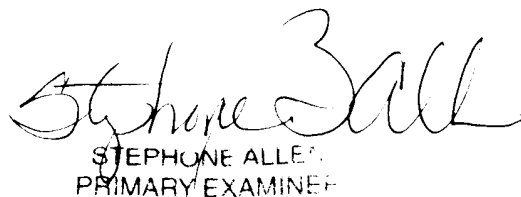 Stephone B Allen
STEPHONE ALLEN
PRIMARY EXAMINER